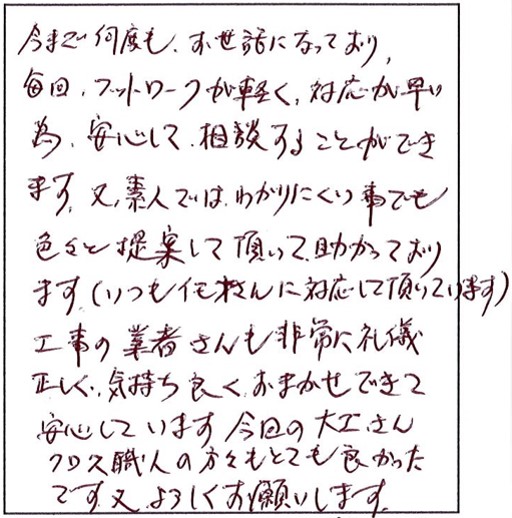 今まで何度も、お世話になっており、
毎回、フットワークが軽く、対応が早い
為、安心して、相談することができ
ます。又、素人では、わかりにくい事でも
色々と提案して頂いて、助かっており
ます。(いつも さんに対応して頂いています)
工事の業者さんも非常に礼儀
正しく、気持ち良く、おまかせできて
安心しています。今回の大工さん
クロス職人の方々もとても良かった
です。又よろしくお願いします。